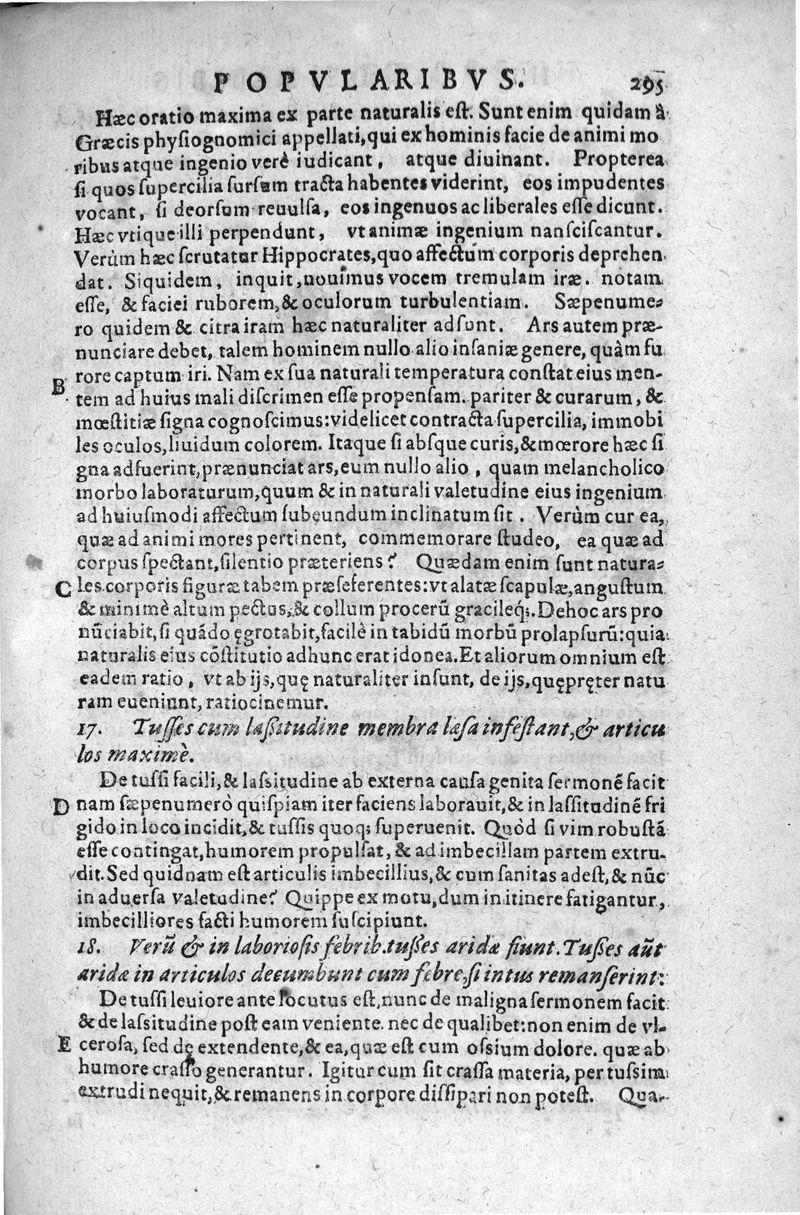 POPVLARIBVS. 295
Hæc oratio maxima ex parte naturalis eſt. Sunt enim quidam à
Græcis phyſiognomici appellati, qui ex hominis facie de animi mo
ribus atque ingenio verè iudicant, atque diuinant. Propterea
ſi quos ſupercilia ſurſum tracta habentes viderint, eos impudentes
vocant, ſi deorſum reuulſa, eos ingenuos ac liberales eſſe dicunt.
Hæc vtique illi perpendunt, vt animæ ingenium nanſciſcantur.
Verùm hæc ſcrutatur Hippocrates, quo affectum corporis deprehen
dat. Siquidem, inquit, nouimus vocem tremulam iræ. notam
eſſe, & faciei ruborem, & oculorum turbulentiam. Sæpenume-
ro quidem & citra iram hæc naturaliter adſunt. Ars autem præ-
nunciare debet, talem hominem nullo alio inſaniæ genere, quàm fu
rore captum iri. Nam ex ſua naturali temperatura conſtat eius men-
B tem ad huius mali diſcrimen eſſe propenſam. pariter & curarum, &
mœſtitiæ ſigna cognoſcimus: videlicet contracta ſupercilia, immobi
les oculos, liuidum colorem. Itaque ſi abſque curis, & mœrore hæc ſi
gna adfuerint, prænunciat ars, eum nullo alio, quam melancholico
morbo laboraturum, quum & in naturali valetudine eius ingenium
ad huiuſmodi affectum ſubeundum inclinatum ſit. Verùm cur ea,
quæ ad animi mores pertinent, commemorare ſtudeo, ea quæ ad
corpus ſpectant, ſilentio præteriens? Quædam enim ſunt natura-
C les corporis figuræ tabem præſeferentes: vt alatæ ſcapulæ, anguſtum
& minimè altum pectus, & collum procerũ gracileq;. De hoc ars pro
nũciabit, ſi quãdo ęgrotabit, facilè in tabidũ morbũ prolapſurũ: quia
naturalis eius cõſtitutio ad hunc erat idonea. Et aliorum omnium eſt
eadem ratio, vt ab ijs, quę naturaliter inſunt, de ijs, quę pręter natu
ram eueniunt, ratiocinemur.
17. Tuſſes cum laſſitudine membra læſa infeſtant, & articu
los maximè.
De tuſſi facili, & laſſitudine ab externa cauſa genita ſermonẽ facit
D nam ſæpenumerò quiſpiam iter faciens laborauit, & in laſſitudinẽ fri
gido in loco incidit, & tuſſis quoq; ſuperuenit. Quòd ſi vim robuſtã
eſſe contingat, humorem propulſat, & ad imbecillam partem extru-
dit. Sed quidnam eſt articulis imbecillius, & cum ſanitas adeſt, & nũc
in aduerſa valetudine? Quippe ex motu, dum in itinere fatigantur,
imbecilliores facti humorem ſuſcipiunt.
18. Verũ & in laborioſis febrib. tuſſes aridæ fiunt. Tuſſes aũt
aridæ in articulos decumbunt cum febre, ſi intus remanſerint:
De tuſſi leuiore ante locutus eſt, nunc de maligna ſermonem facit
& de laſſitudine poſt eam veniente. nec de qualibet: non enim de vl-
E ceroſa, ſed de extendente, & ea, quæ eſt cum oſſium dolore. quæ ab
humore craſſo generantur. Igitur cum ſit craſſa materia, per tuſſim
extrudi nequit, & remanens in corpore diſſipari non poteſt. Qua-